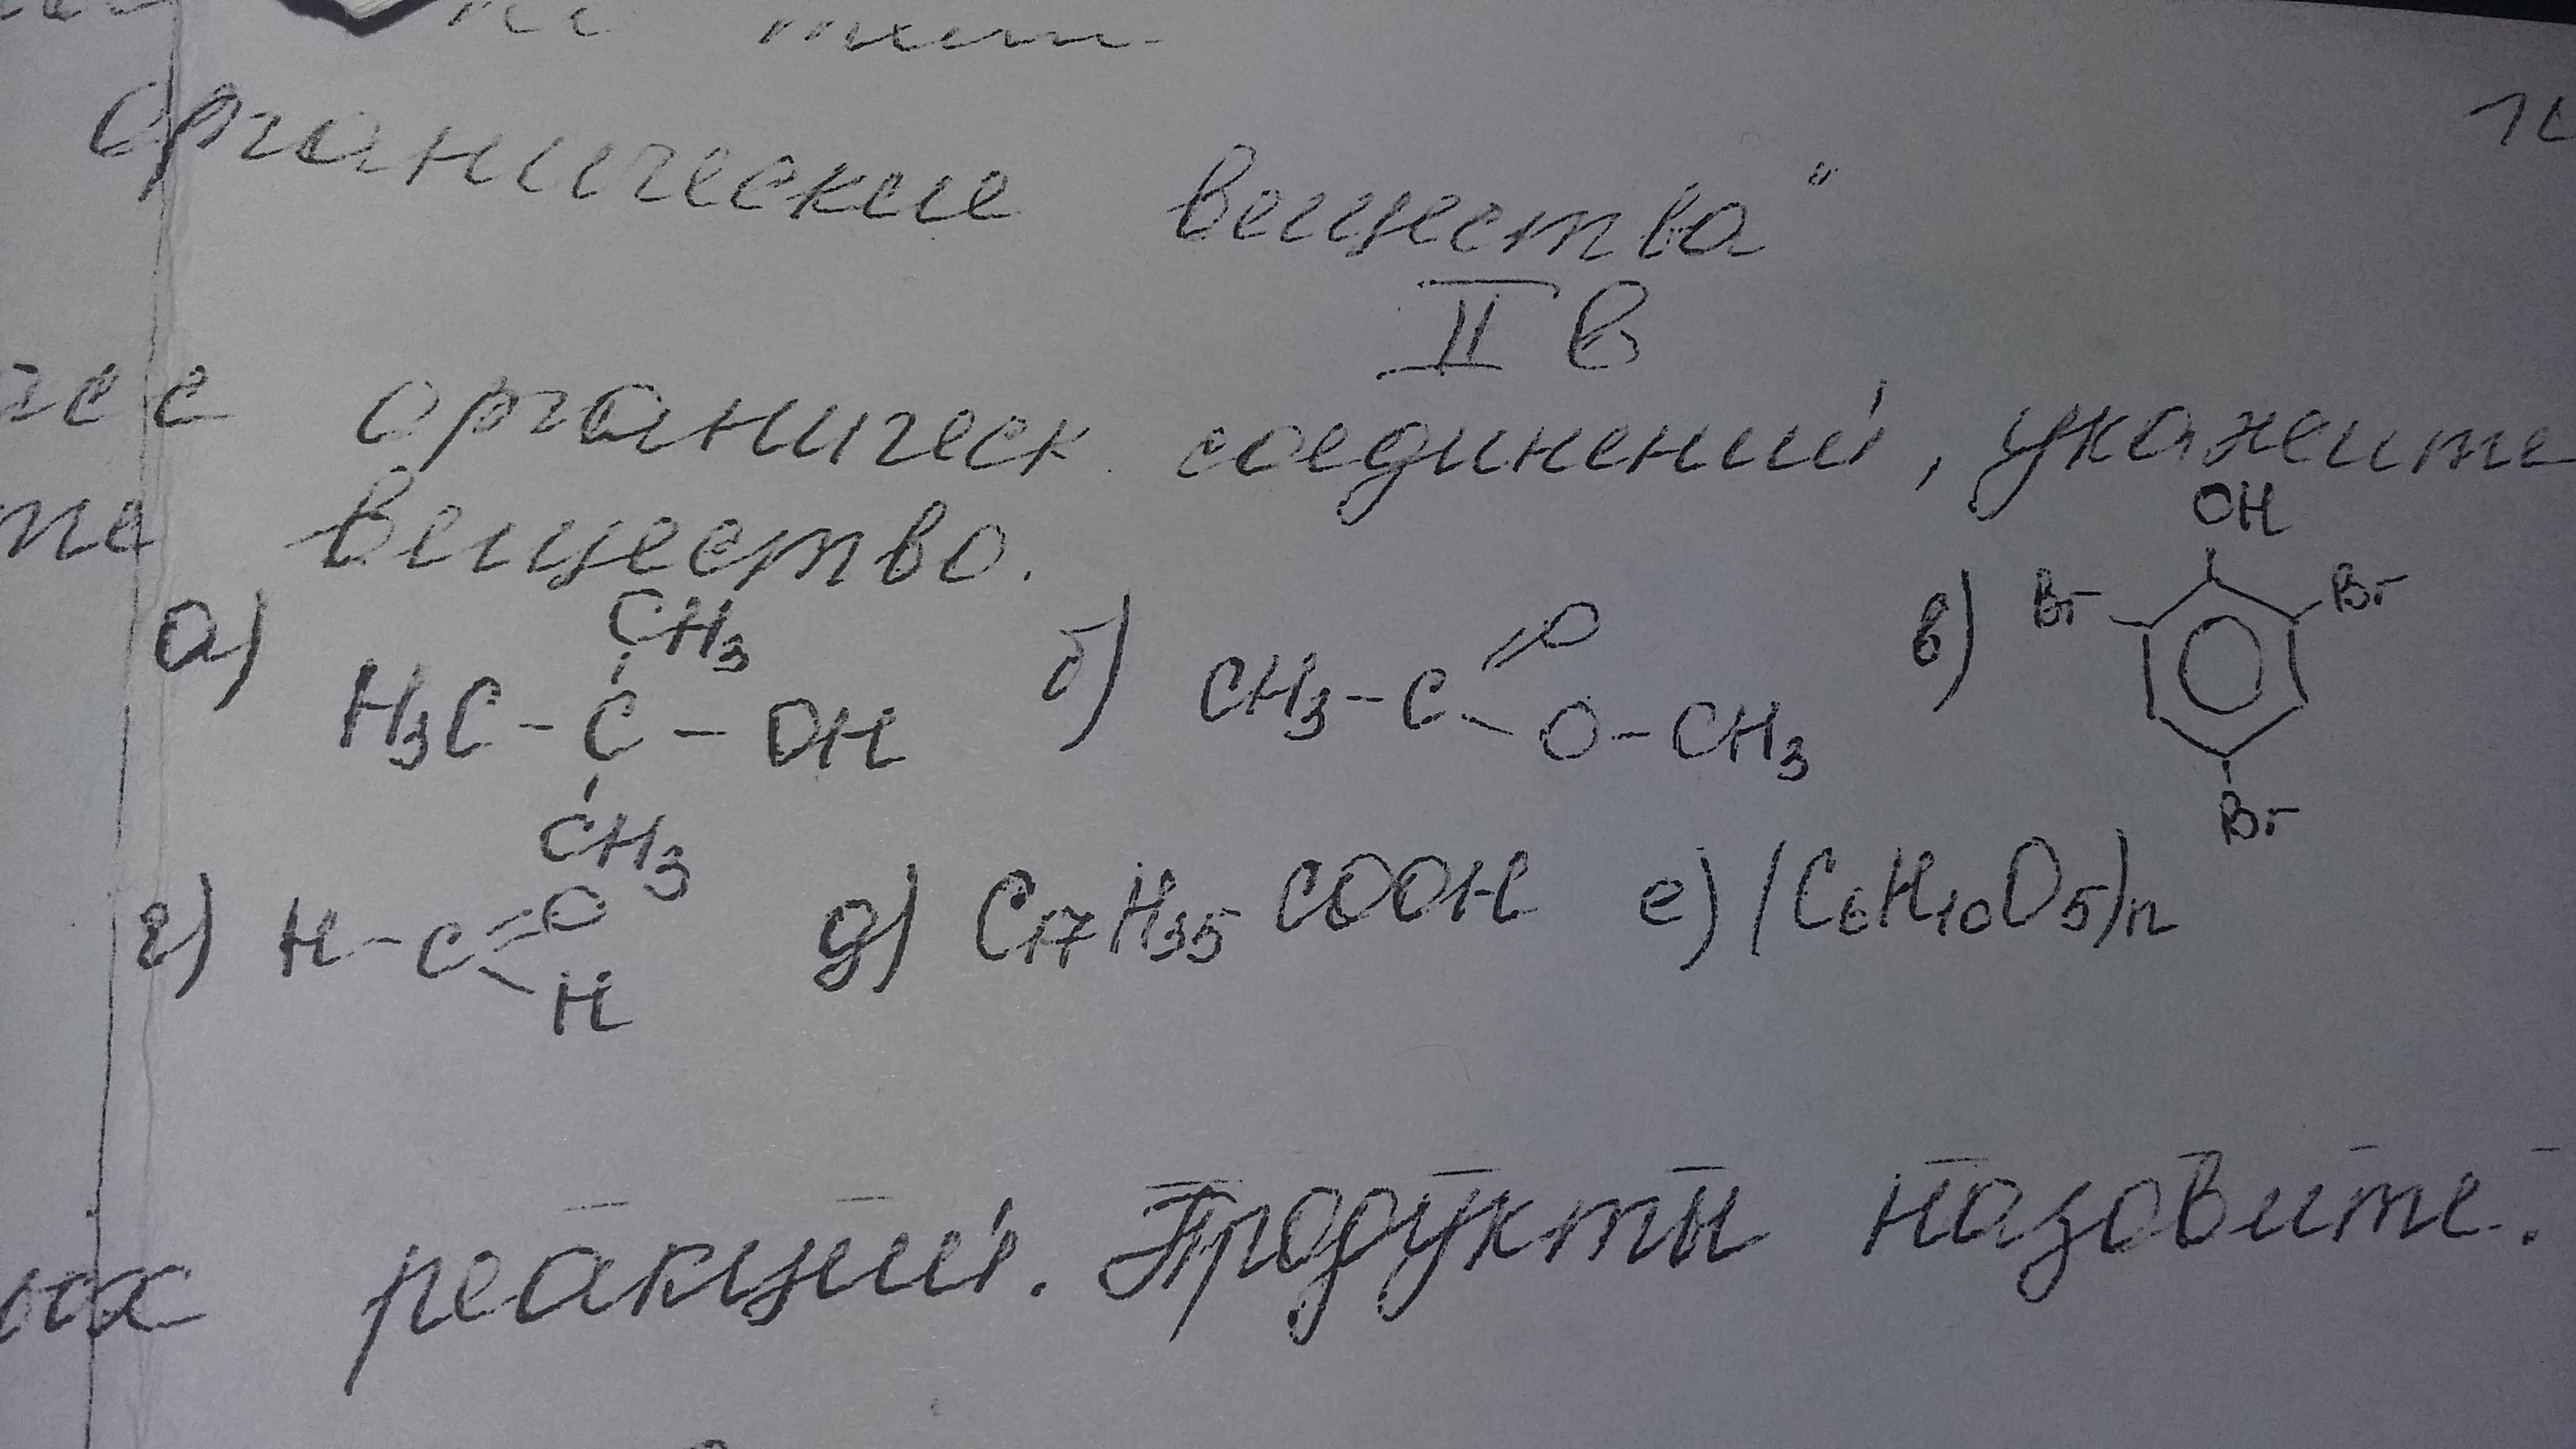 органические вещества"
II в
органическ. соединений, укажите
вещество.
а) H3C - C(CH3)(CH3) - OH б) CH3 - C(=O) - O - CH3 в) OH Br Br Br
г) H - C(=O) - H д) C17H35COOH е) (C6H10O5)n
реакций. Продукты назовите.